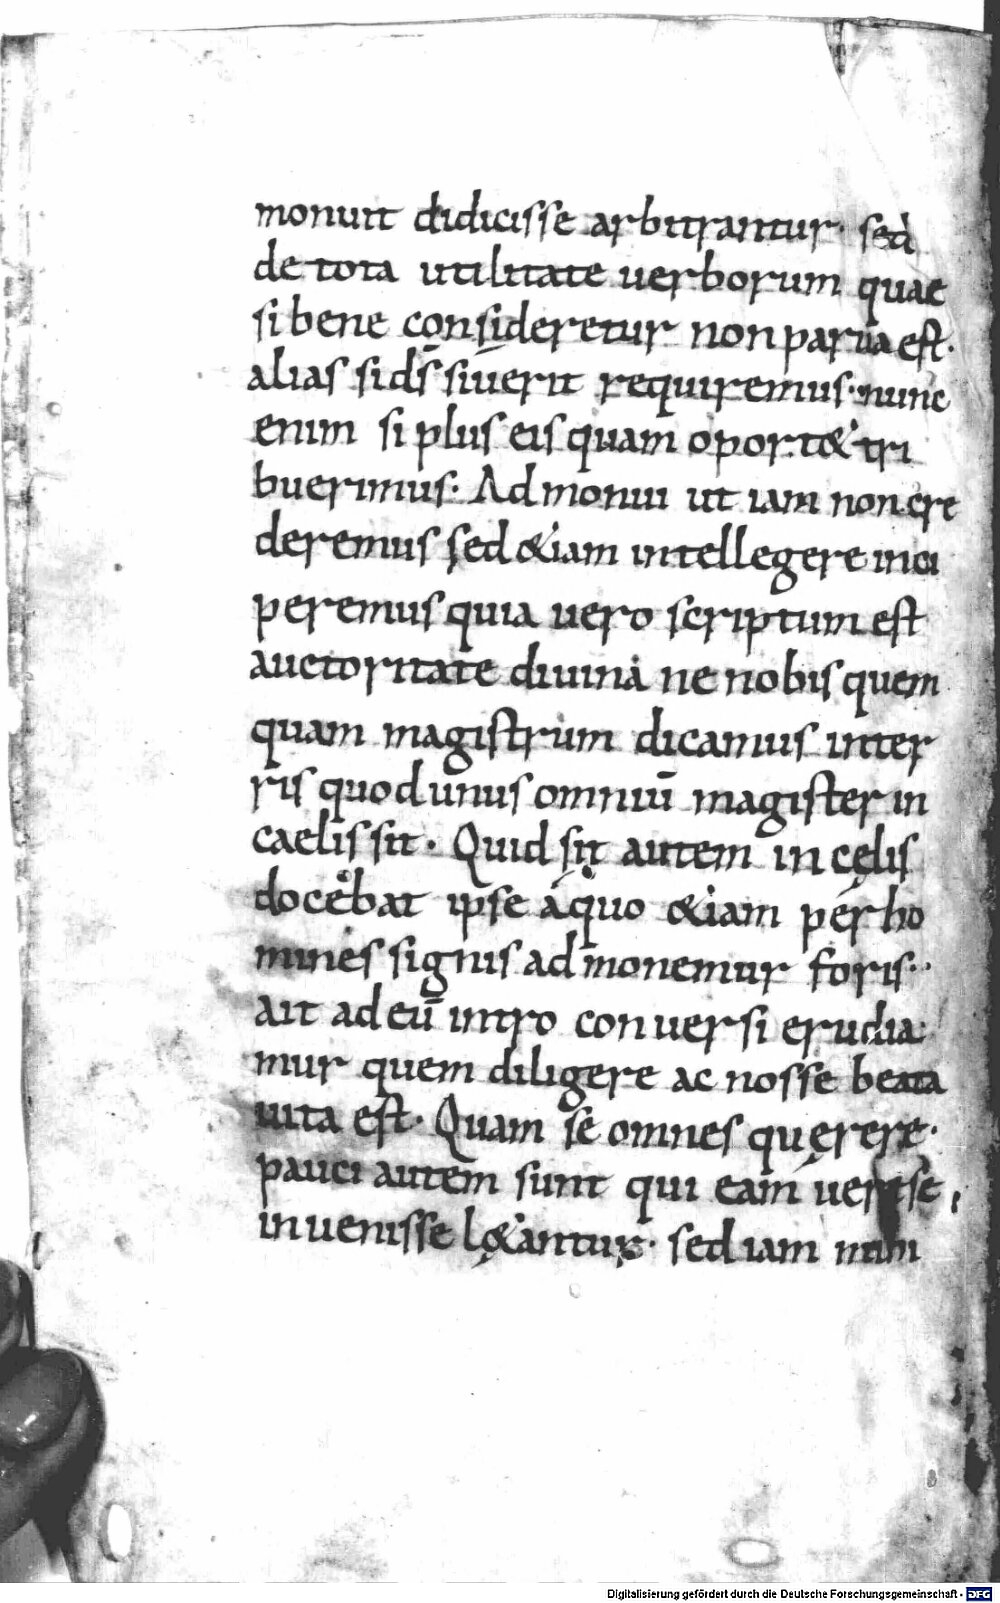 monuit didicisse arbitrantur· sed
de tota utilitate uerborum quae
si bene consideretur non parua est·
alias si ds̄ siuerit requiremus· nunc
enim si plus eis quam oport& tri
buerimus· Admonui ut iam non cre
deremus sed &iam intellegere inci
peremus quia uero scriptum est
auctoritate diuina ne nobis quem
quam magistrum dicamus inter
ris quod unus omniū magister in
caelis sit· Quid sit autem in cęlis
docebat ipse á quo &iam per ho
mines signis admonemur foris··
ait ad eū intro conuersi erudia
mur quem diligere ac nosse beata
uita est· Quam se omnes querere·
pauci autem sunt qui eam uere se
inuenisse l&antur· sed iam mihi
Digitalisierung gefördert durch die Deutsche Forschungsgemeinschaft - DFG